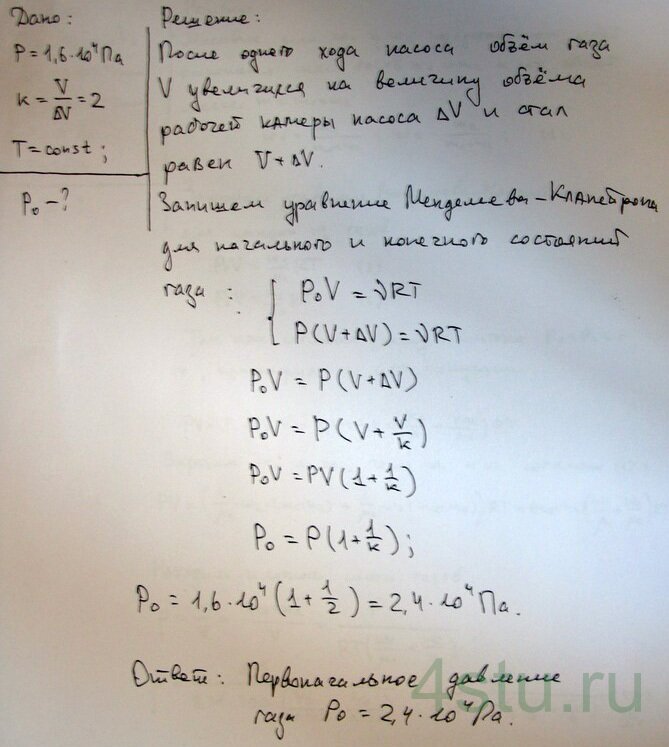 Дано:
P = 1,6·10⁴ Па
k = V/ΔV = 2
T = const;
P₀ - ?
Решение:
После одного хода насоса объём газа
V увеличился на величину объёма
рабочей камеры насоса ΔV и стал
равен V + ΔV.
Запишем уравнение Менделеева-Клапейрона
для начального и конечного состояний
газа: { P₀V = νRT
P(V + ΔV) = νRT
P₀V = P(V + ΔV)
P₀V = P(V + V/k)
P₀V = PV(1 + 1/k)
P₀ = P(1 + 1/k);
P₀ = 1,6·10⁴(1 + 1/2) = 2,4·10⁴ Па.
Ответ: Первоначальное давление
газа P₀ = 2,4·10⁴ Pa.
4stu.ru